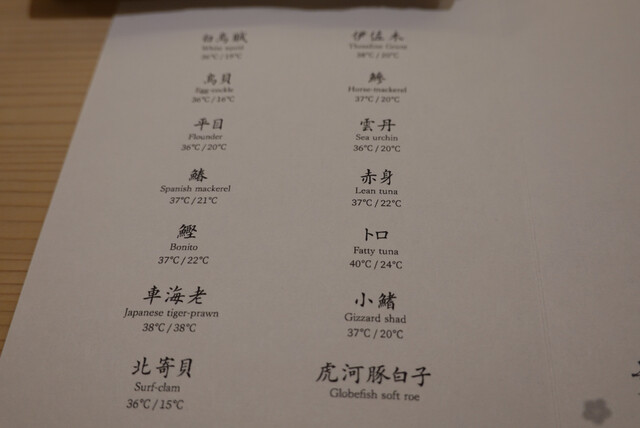 白烏賊
White squid
36℃ / 15℃
鳥貝
Egg-cockle
36℃ / 16℃
平目
Flounder
36℃ / 20℃
鰆
Spanish mackerel
37℃ / 21℃
鰹
Bonito
37℃ / 22℃
車海老
Japanese tiger-prawn
38℃ / 38℃
北寄貝
Surf-clam
36℃ / 15℃
伊佐木
Threeline Grunt
38℃ / 20℃
鯵
Horse-mackerel
37℃ / 20℃
雲丹
Sea urchin
36℃ / 20℃
赤身
Lean tuna
37℃ / 22℃
トロ
Fatty tuna
40℃ / 24℃
小鰭
Gizzard shad
37℃ / 20℃
虎河豚白子
Globefish soft roe